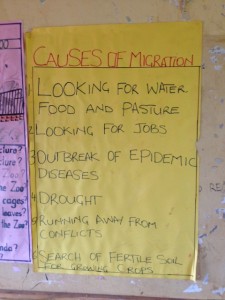 CAUSES OF MIGRATION
1. LOOKING FOR WATER
FOOD AND PASTURE
2. LOOKING FOR JOBS
3. OUTBREAK OF EPIDEMIC
DISEASES
4. DROUGHT
5. RUNNING AWAY FROM
CONFLICTS
6. SEARCH OF FERTILE SOIL
FOR GROWING CROPS
the Zoo
cages
leaves
the Zoo?